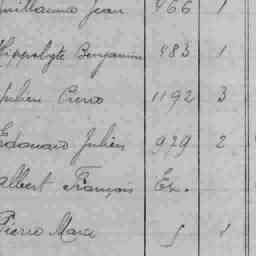 Guillaume Jean 466 1
Hippolyte Benjamin 483 1
Julien 1192 3
Edouard Julien 929 2
Albert François Ex.
Pierre Marie 1